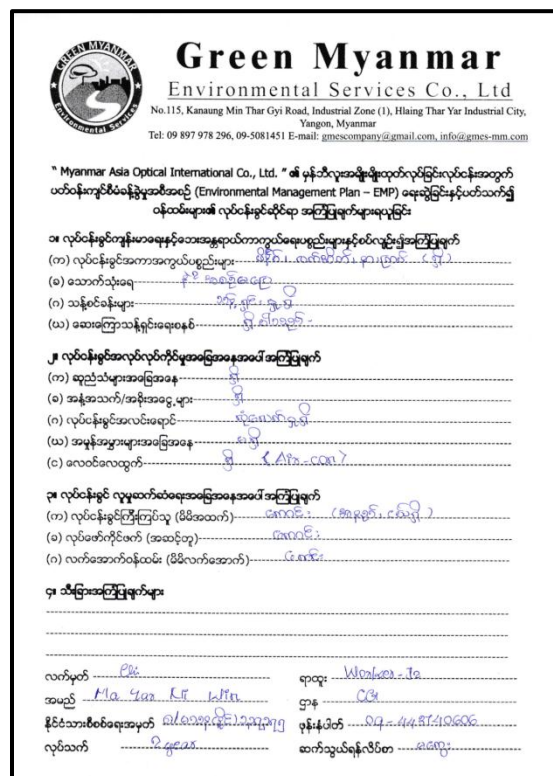 GREEN MYANMAR
Environmental Services
Green Myanmar
Environmental Services Co., Ltd
No.115, Kanaung Min Thar Gyi Road, Industrial Zone (1), Hlaing Thar Yar Industrial City,
Yangon, Myanmar
Tel: 09 897 978 296, 09-5081451 E-mail: gmescompany@gmail.com, info@gmes-mm.com
“ Myanmar Asia Optical International Co., Ltd. ” ၏ မှန်ဘီလူးအမျိုးမျိုးထုတ်လုပ်ခြင်းလုပ်ငန်းအတွက်
ပတ်ဝန်းကျင်စီမံခန့်ခွဲမှုအစီအစဉ် (Environmental Management Plan – EMP) ရေးဆွဲခြင်းနှင့်ပတ်သက်၍
ဝန်ထမ်းများ၏ လုပ်ငန်းခွင်ဆိုင်ရာ အကြံပြုချက်များရယူခြင်း
၁။ လုပ်ငန်းခွင်ကျန်းမာရေးနှင့်ဘေးအန္တရာယ်ကာကွယ်ရေးပစ္စည်းများနှင့်စပ်လျဉ်း၍အကြံပြုချက်
(က) လုပ်ငန်းခွင်အကာအကွယ်ပစ္စည်းများ ဖိနပ်၊ လက်အိတ်၊ (ရှိ)
(ခ) သောက်သုံးရေ
(ဂ) သန့်စင်ခန်းများ
(ဃ) ဆေးကြောသန့်ရှင်းရေးစနစ် ရှိပါသည်
၂။ လုပ်ငန်းခွင်အလုပ်လုပ်ကိုင်မှုအခြေအနေအပေါ်အကြံပြုချက်
(က) ဆူညံသံများအခြေအနေ ရှိ
(ခ) အနံ့အသက်/အခိုးအငွေ့များ ရှိ
(ဂ) လုပ်ငန်းခွင်အလင်းရောင် လုံလောက်မှုရှိ
(ဃ) အမှုန်အမွှားများအခြေအနေ မရှိ
(င) လေဝင်လေထွက် ရှိ (Air-con)
၃။ လုပ်ငန်းခွင် လူမှုဆက်ဆံရေးအခြေအနေအပေါ်အကြံပြုချက်
(က) လုပ်ငန်းခွင်ကြီးကြပ်သူ (မိမိအထက်) ကောင်း
(ခ) လုပ်ဖော်ကိုင်ဖက် (အဆင့်တူ) ကောင်း
(ဂ) လက်အောက်ဝန်ထမ်း (မိမိလက်အောက်) ကောင်း
၄။ သီးခြားအကြံပြုချက်များ
လက်မှတ် ရာထူး Worker-J2
အမည် Ma Yar Ki Win ဌာန CG
နိုင်ငံသားစိစစ်ရေးအမှတ် ဖုန်းနံပါတ် 09-445740606
လုပ်သက် 2 year ဆက်သွယ်ရန်လိပ်စာ